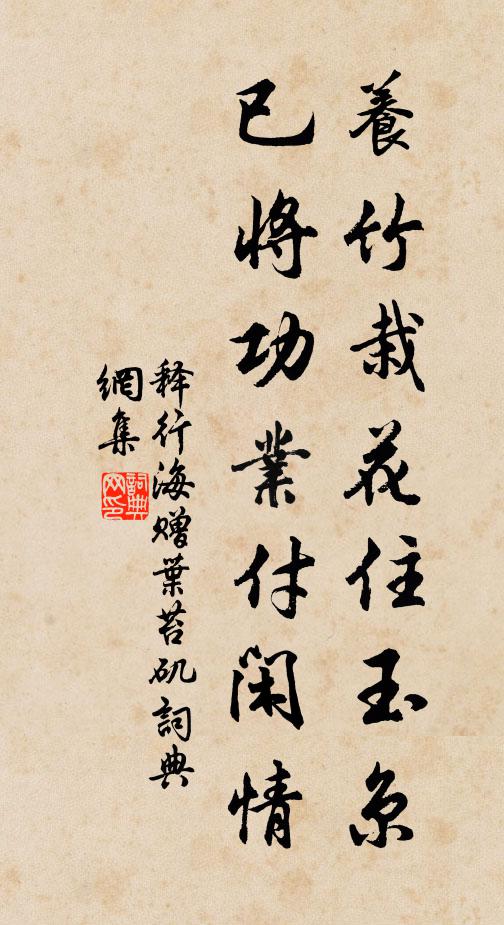 養竹栽花住玉京
已將功業付閑情
释行海赠葉苔矶詞典
網集
詞典
网印